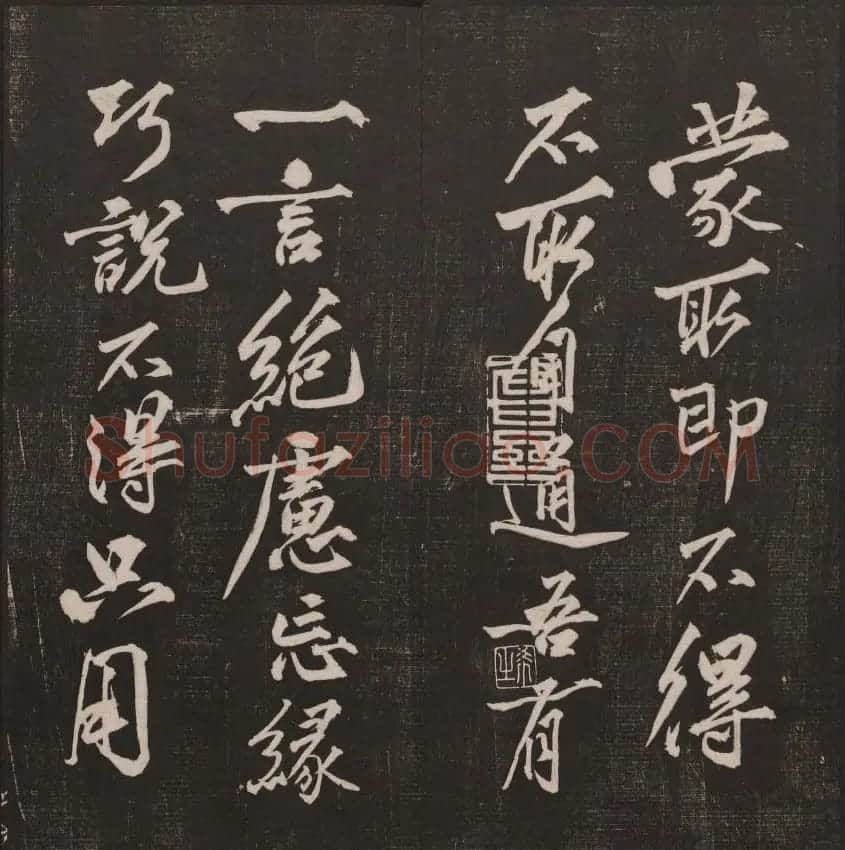 蒙取即不得
不取自通吾有
一言絶慮忘緣
巧說不得只用
Shufaziliao.COM